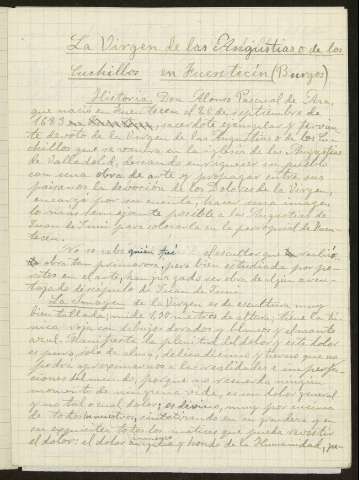 La Virgen de las Angustias o de los
Cuchillos en Fuentecén (Burgos)
Historia Don Alonso Pascual de
que nació en Fuentecén el 28 de septiembre de
1683 sacerdote ejemplar y fervien
te devoto de la Virgen de las Angustias o de los Cu
chillos que se venera en la iglesia de las Angustias
de Valladolid, deseando enriquecer su pueblo
con una obra de arte y propagar entre sus
paisanos la devoción de los Dolores de la Virgen,
encargó por su cuenta, hacer una imagen
lo más semejante posible a las Angustias de
Juan de Juni para colocarla en la parroquial de Fuen
tecén.
No se sabe quién fué el escultor que realizó
obra tan primorosa, pero bien estudiada por pe
ritos en el arte, han juzgado ser obra de algún aven
tajado discípulo de Juan de Juni.
La Imagen de la Virgen es de escultura muy
bien tallada; mide 1,00 metros de altura; tiene la tú
nica roja con dibujos dorados y blancos y el manto
azul. Manifiesta la plenitud del dolor y este dolor
es puro, solo de alma, delicadísimo y tierno que no
podría aproximarse a las realidades e imperfec
ciones del mundo, porque no recuerda ningún
momento de ninguna vida, es un dolor general
y un total cual dolor; es divino, muy por encima
de todos sintetizando en su grandeza y en
su exquisitez todos los matices que pueda revestir
el dolor: el dolor amargo y hondo de la Humanidad,